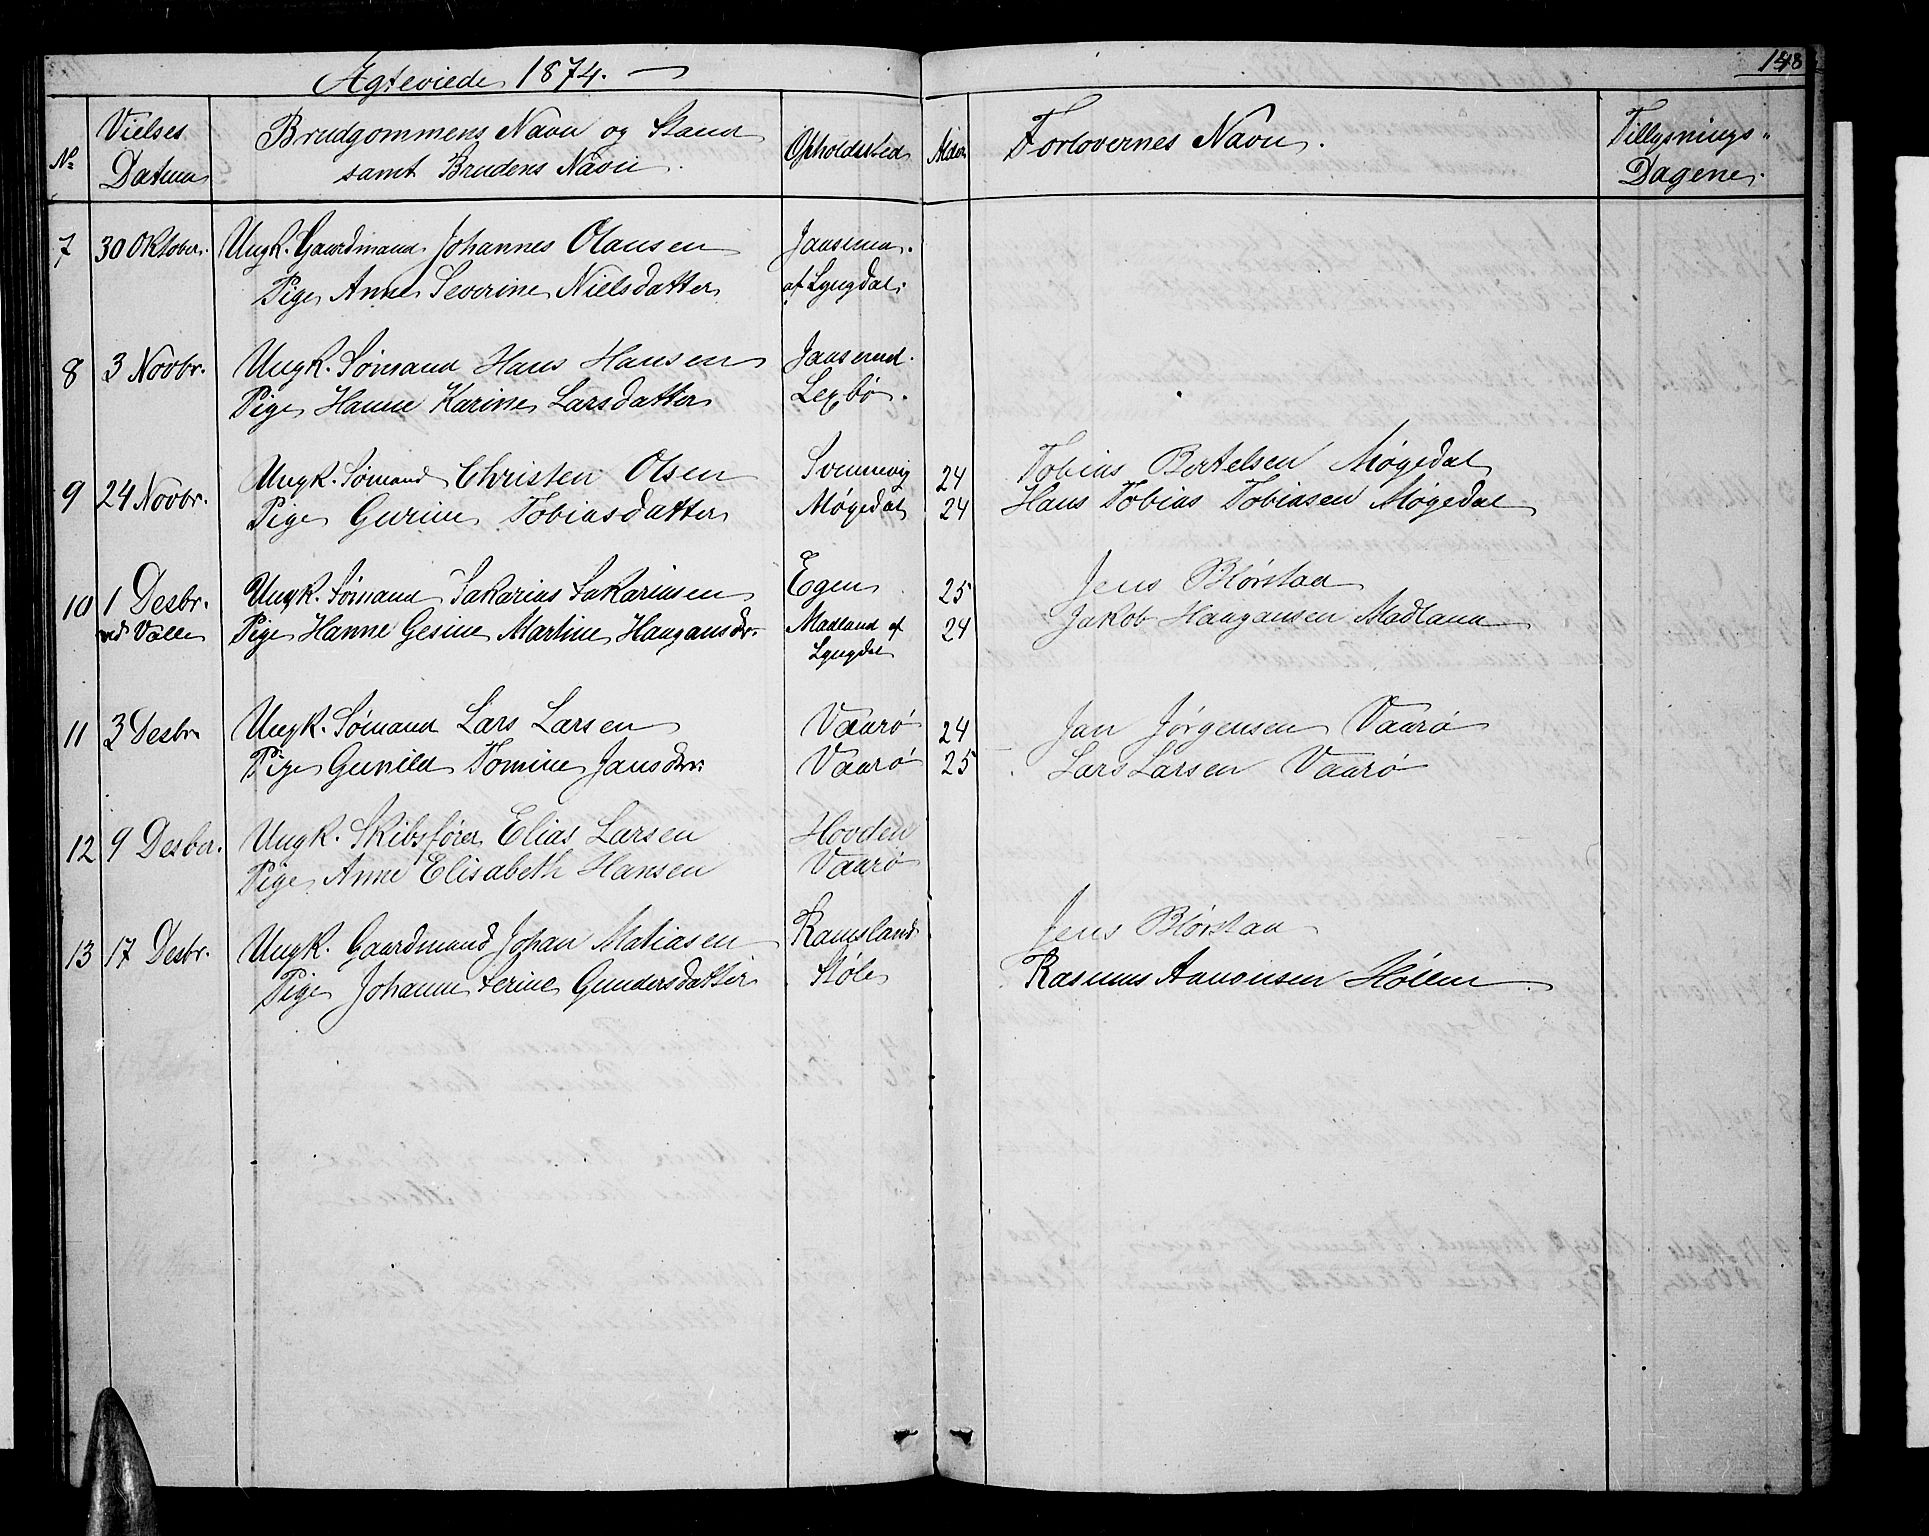 Ægteviede 1874.
148
No Vielses Datum Brudgommens Navn og Stand samt Brudens Navn. Opholdssted Alder Forlovernes Navn. Tillysnings-Dagene.
7 30 Oktober. Ungk. Gaardmand Johannes Olausen
Pige Anne Severine Nielsdatter af Lyngdal.
8 3 Novbr. Ungk. Sømand Hans Hansen
Pige Hanne Karine Larsdatter
9 24 Novbr. Ungk. Sømand Christen Olsen Svennevig 24 Tobias Bertelsen Møgedal
Pige Gurine Tobiasdatter Møgedal 24 Hans Tobias Tobiasen Møgedal
10 1 Desbr. Ungk. Sømand Sakarias Sakariasen Egen 25 Jens Blørstad
ved Valle Pige Hanne Gesine Martine Haagansdr. Madland af Lyngdal 24 Jakob Haagansen Madland
11 3 Desbr Ungk. Sømand Lars Larsen Vaarø 24 Jan Jørgensen Vaarø
Pige Gunild Tomine Jansdr: Vaarø 25 Lars Larsen Vaarø
12 9 Desber. Ungk. Skibsfører Elias Larsen Hovden
Pige Anne Elisabeth Hansen Vaarø
13 17 Desbr. Ungk. Gaardmand Johan Matiasen Ramsland Jens Blørstad
Pige Johanne Serine Gundersdatter Støle Rasmus Aanonsen Høllen